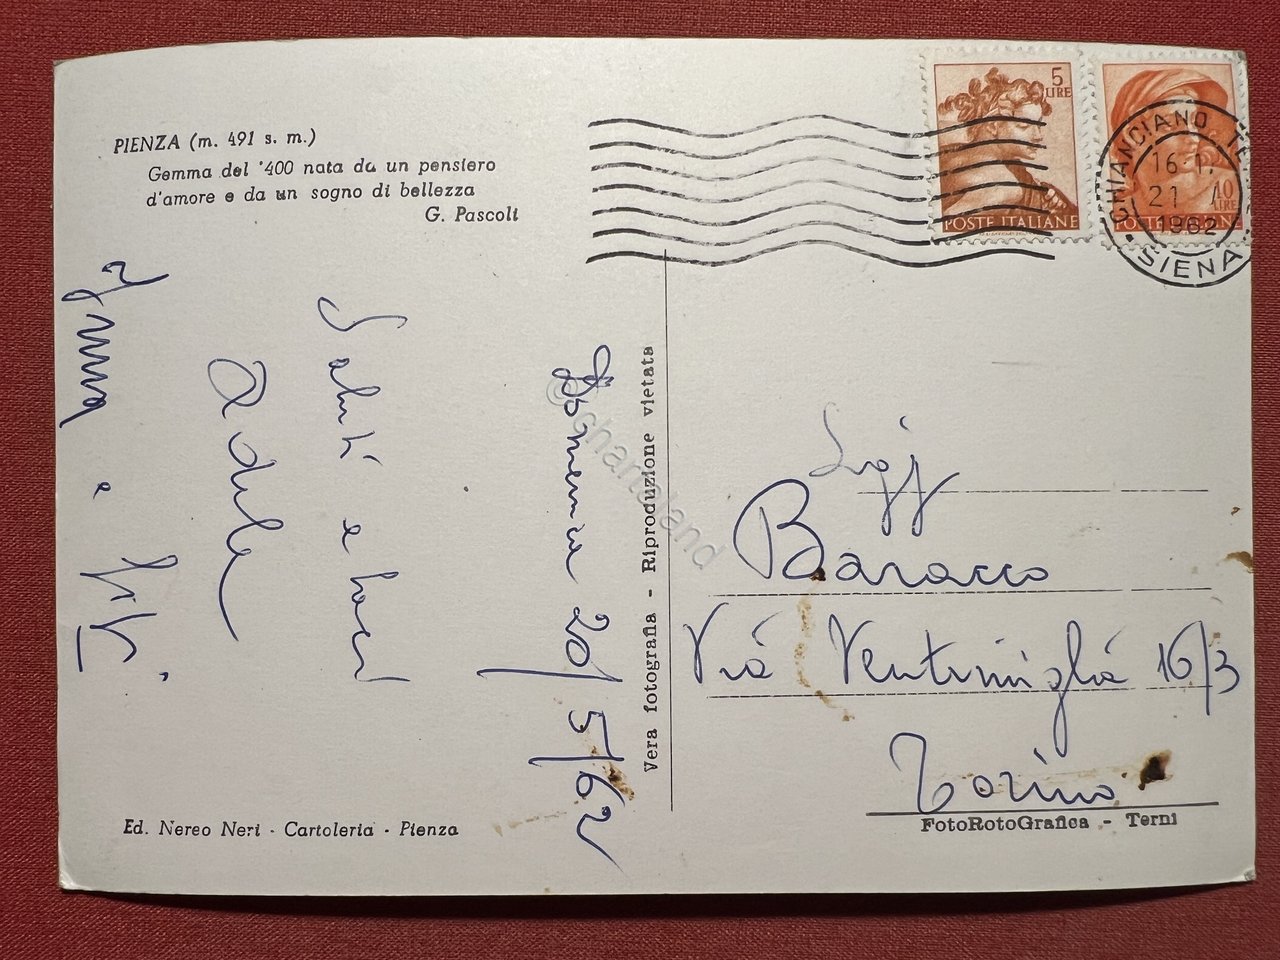 PIENZA (m. 491 s. m.)
Gemma del '400 nata da un pensiero
d'amore e da un sogno di bellezza
G. Pascoli
5
LIRE
POSTE ITALIANE
10
LIRE
POSTE ITALIANE
CHIANCIANO TE
16-1.
21
1962
• SIENA
Domenica 20/5/62
Saluti e baci
Adele
Vera fotografia - Riproduzione vietata
© chartaland
Sigg
Baracco
Via Ventimiglia 16/3
Torino
Ed. Nereo Neri - Cartoleria - Pienza
FotoRotoGrafica - Terni